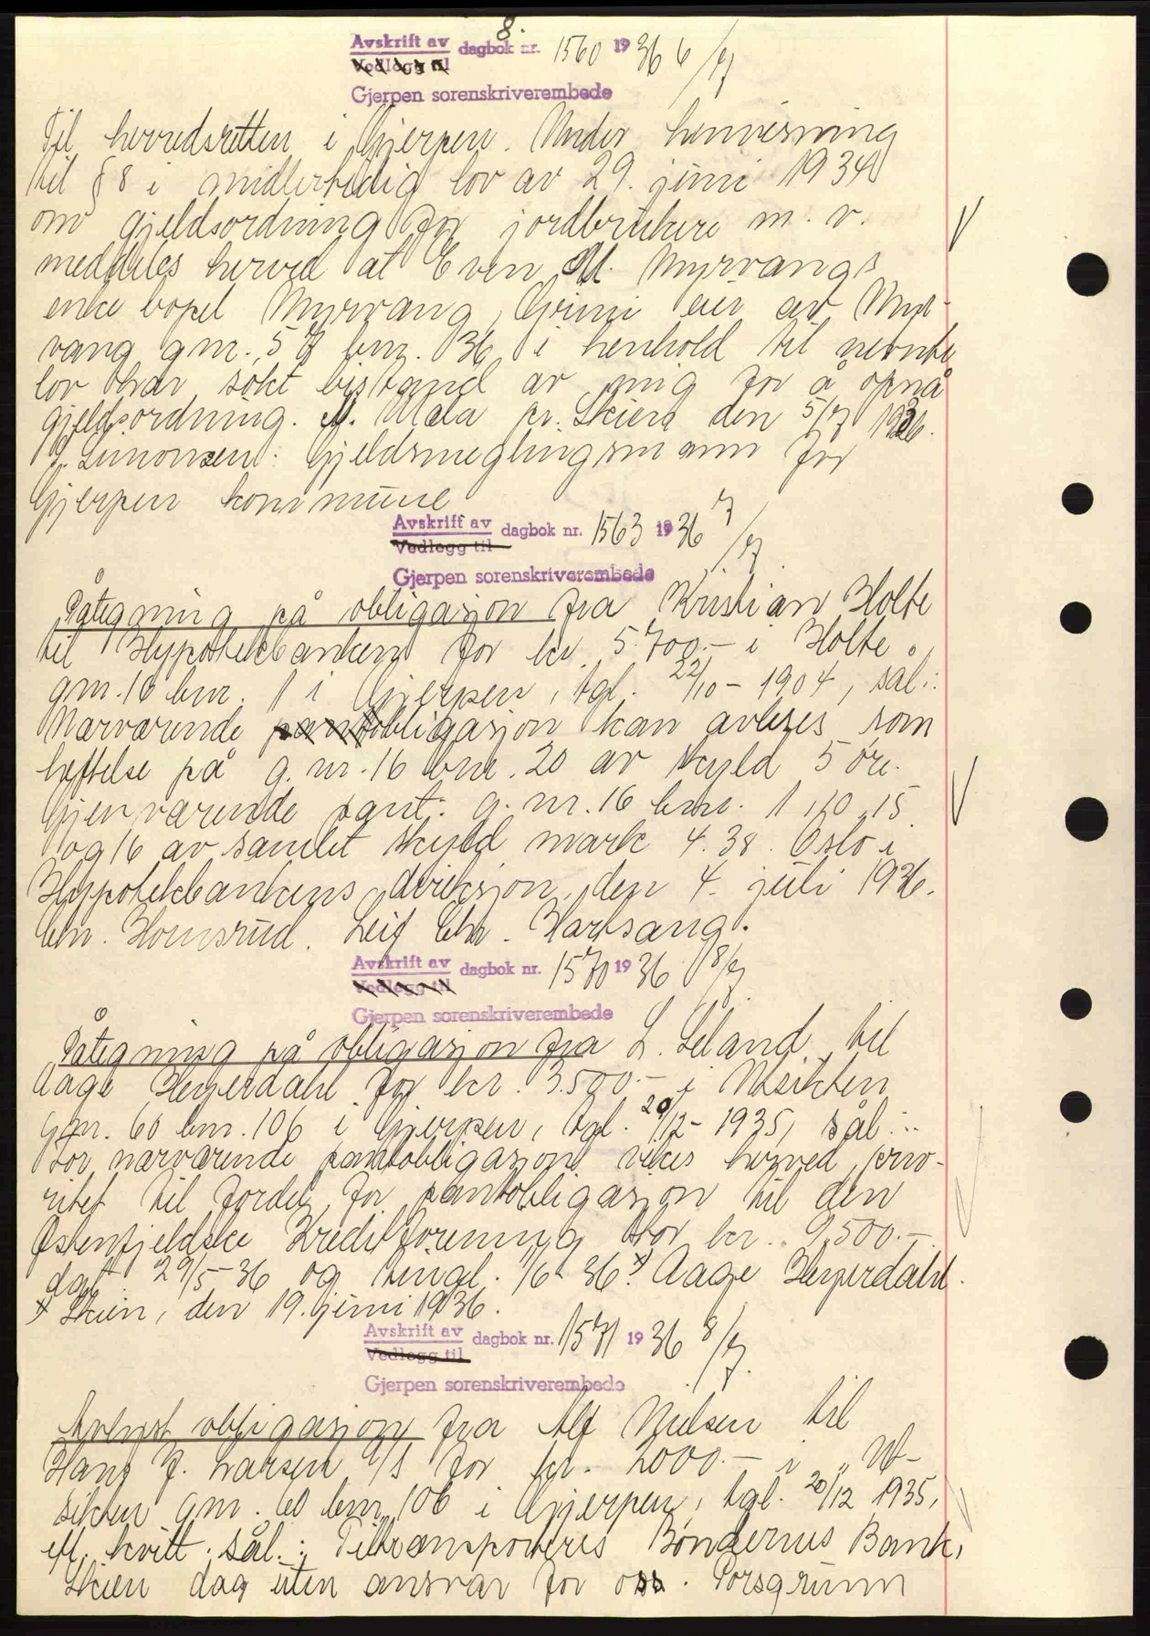 8.
Avskrift av dagbok nr. 1560 1936 6/7
Vedlegg til
Gjerpen sorenskriverembede
Til herredsretten i Gjerpen. Under henvisning
til § 8 i midlertidig lov av 29. juni 1934
om gjeldsordning for jordbrukere m. v.
meddeles herved at Even M. Myrvangs
enke bopel Myrvang, Grini eier av Myr-
vang gnr. 57 bnr. 36 i henhold til nevnte
lov har søkt bistand av mig for å opnå
gjeldsordning. Mæla pr. Skien den 5/7 1936.
Simonsen. Gjeldsmeglingsmann for
Gjerpen kommune
Avskrift av dagbok nr. 1563 1936 7/7
Vedlegg til
Gjerpen sorenskriverembede
Påtegning på obligasjon fra Kristian Holte
til Hypotekbanken for kr. 5700.- i Holte
gnr. 16 bnr. 1 i Gjerpen, tgl. 22/10 - 1904, sål.:
Nærværende pantobligasjon kan avleses som
heftelse på g. nr. 16 bnr. 20 av skyld 5 øre.
Gjenværende pant: g. nr. 16 bnr. 1, 10, 15
og 16 av samlet skyld mark 4.38. Oslo i
Hypotekbankens direksjon, den 4. juli 1936.
Chr. Homsrud. Leif Chr. Hartsang.
Avskrift av dagbok nr. 1570 1936 8/7
Vedlegg til
Gjerpen sorenskriverembede
Påtegning på obligasjon fra L. Leland til
Aage Heyerdahl for kr. 3.500.- i Utsikten
gnr. 60 bnr. 106 i Gjerpen, tgl. 20/12 - 1935, sål.:
For nærværende pantobligasjon vikes herved prio-
ritet til fordel for pantobligasjon til den
Østenfjeldske Kreditforening stor kr. 9.500.-
dat. 29/5-36 og tingl. /6-36. x) Aage Heyerdahl.
x Skien, den 19. juni 1936.
Avskrift av dagbok nr. 1571 1936 8/7
Vedlegg til
Gjerpen sorenskriverembede
Avlyst obligasjon fra Alf Nielsen til
Hans J. Larsen A/S for kr. 2000.- i Ut-
sikten gnr. 60 bnr. 106 i Gjerpen, tgl. 20/12 1935,
efl. kvitt. sål.: Tiltransporteres Bøndernes Bank,
Skien dag uten ansvar for oss. Porsgrunn